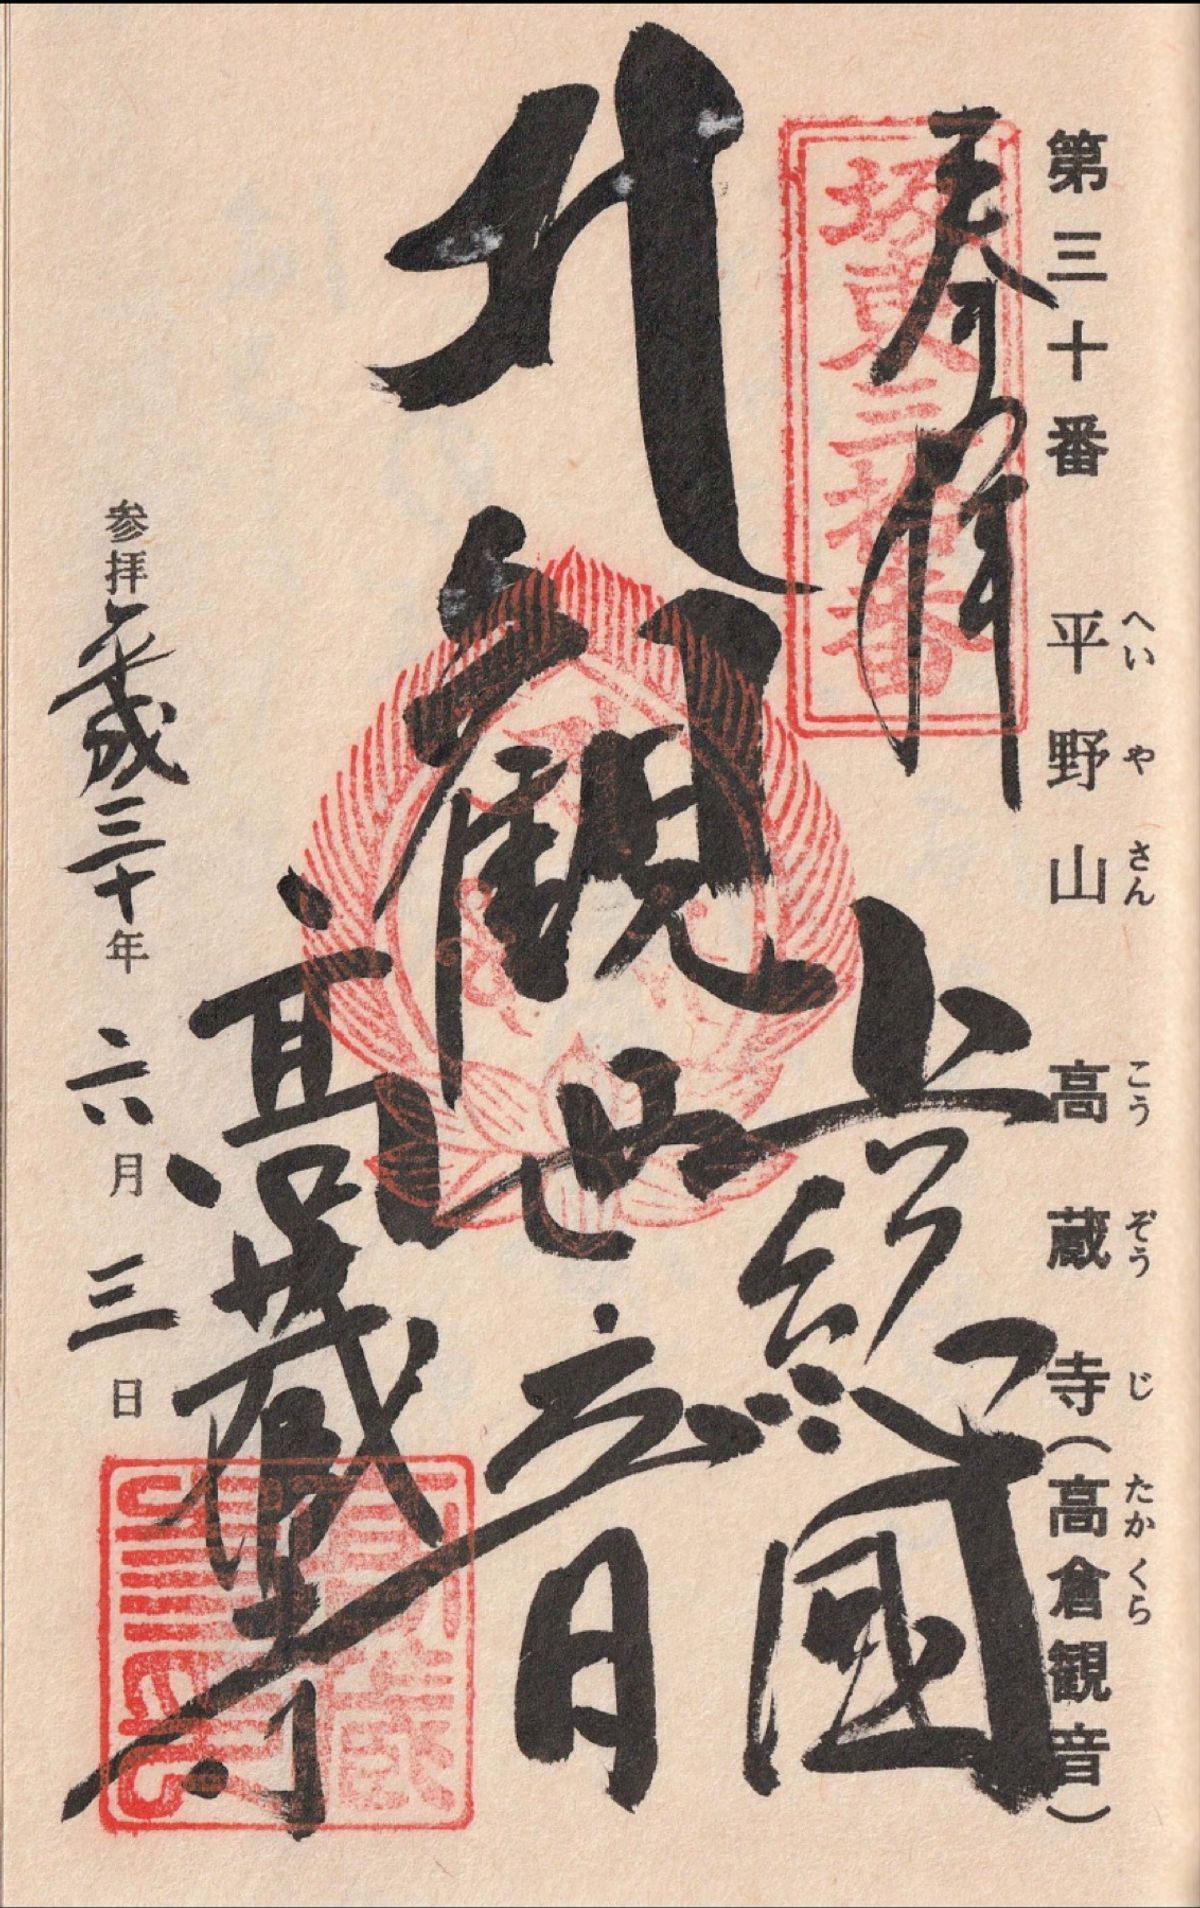 第三十番 平野山 高蔵寺(高倉観音)
へいやさん こうぞうじ たかくら
奉拝
坂東三拾番
上総國
観世音
高蔵寺
参拝 平成三十年 六月三日